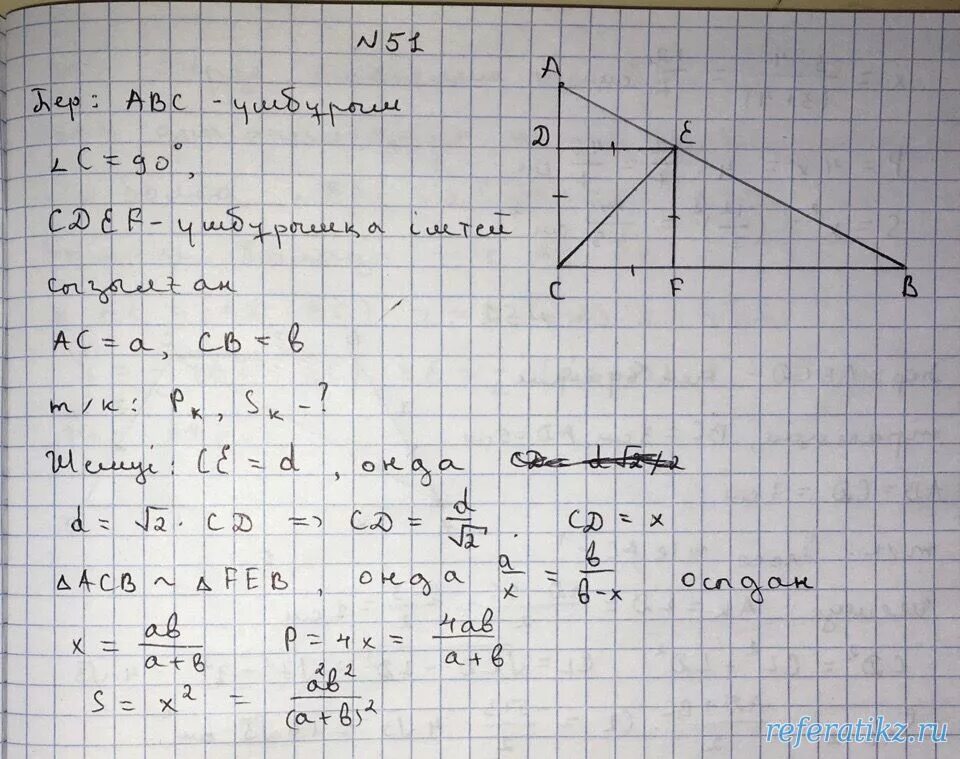 N 51
Бер: ABC - үшбұрыш
∠C = 90°,
CDEF - үшбұрышқа іштей
сызылған
AC = a, CB = b
т/к: Pк, Sк - ?
Шешуі: CE = d, онда
d = √2 · CD => CD = d/√2. CD = x
△ACB ~ △FEB, онда a/x = b/(b-x) осыдан
x = ab/(a+b) P = 4x = 4ab/(a+b)
S = x² = a²b²/(a+b)²
A
D
E
C
F
B
referatikz.ru